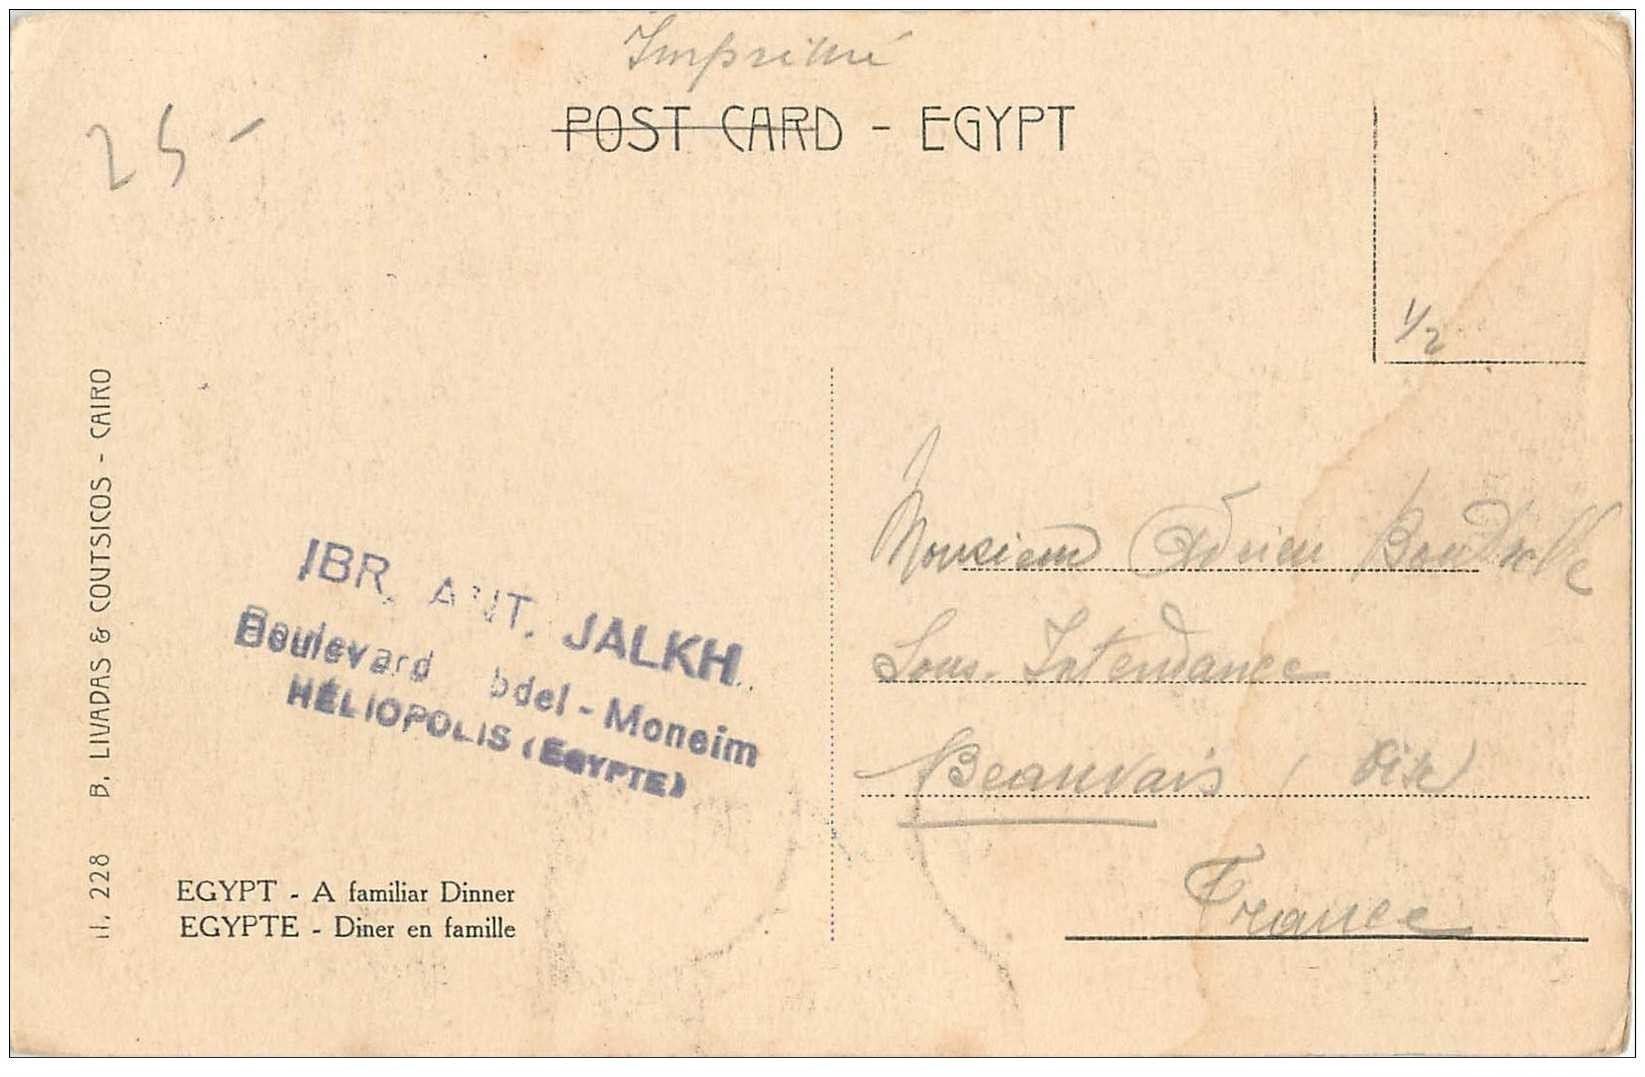 Imprimé
POST CARD - EGYPT
25 -
1/2
B. LIVADAS & COUTSICOS - CAIRO
228
IBR. ANT. JALKH.
Boulevard bdel - Moneim
HÉLIOPOLIS (EGYPTE)
EGYPT - A familiar Dinner
EGYPTE - Diner en famille
Monsieur Adrien
Sous-Intendance
Beauvais (Oise)
France